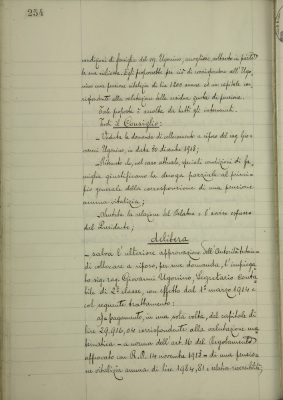 254
condizioni di famiglia del rag. Ugonino, accogliere soltanto in parte
la sua richiesta. Egli proporrebbe per ciò di corrispondere all'Ugo-
nino una pensione vitalizia di lire 1200 annue ed un capitale cor-
rispondente alla valutazione della residua quota di pensione.
Tale proposta è accolta da tutti gli intervenuti.
Indi il Consiglio:
- Veduta la domanda di collocamento a riposo del rag. Gio-
vanni Ugonino, in data 20 dicembre 1913;
- Ritenuto che, nel caso attuale, speciali condizioni di fa-
miglia giustificano la deroga parziale al princi-
pio generale della corresponsione di una pensione
annua vitalizia;
- Sentita la relazione del Relatore e l'avviso espresso
dal Presidente;
delibera
- salva l'ulteriore approvazione dell'Autorità tutoria
di collocare a riposo, per sua domanda, l'impiega-
to sig. rag. Giovanni Ugonino, Segretario Conta-
bile di 2ª classe, con effetto dal 1° marzo 1914 e
col seguente trattamento:
a) pagamento, in una sola volta, del capitale di
lire 29.916,04 corrispondente alla valutazione ma-
tematica - a norma dell'art. 16 del Regolamento
approvato con R.D. 14 novembre 1912 - di una pensio-
ne vitalizia annua di lire 1984,81 e relativa riversibilità;